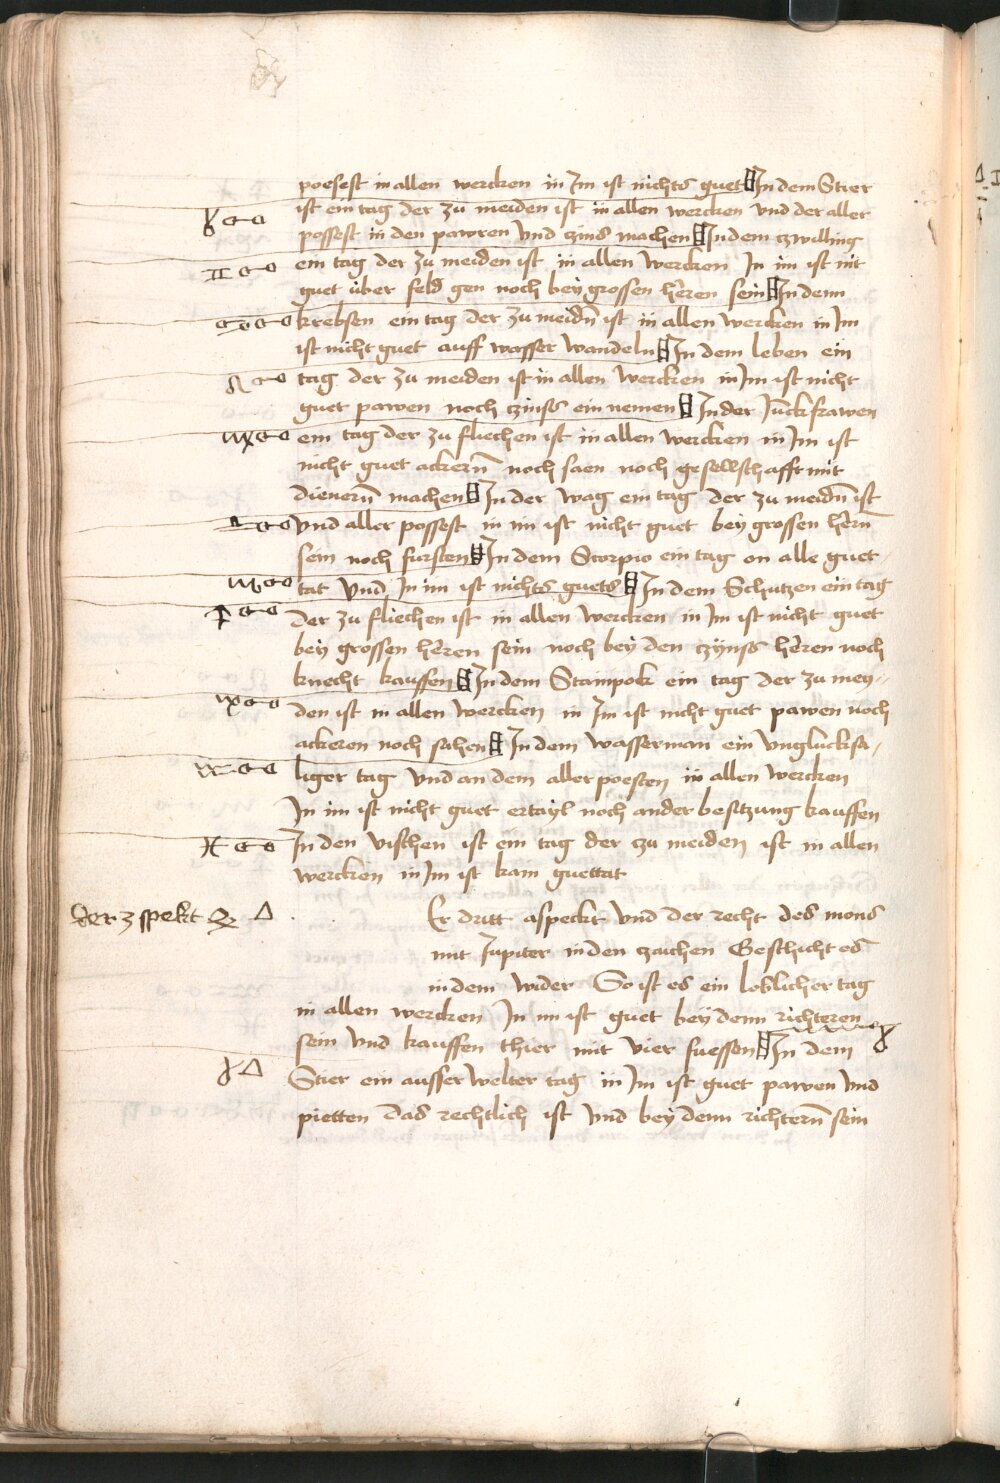 poesest in allen wercken in Im ist nichts guet In dem Stier
♉ ☍ ist ein tag der zu meiden ist in allen wercken vnd der aller
possest in den pawren vnd czins machen In dem czwilling
♊ ☍ ein tag der zu meiden ist in allen wercken In im ist nit
guet über feld gen noch bey grossen heren sein In dem
♋ ☍ krebsen ein tag der zu meidn̄ ist in allen wercken in Im
ist nicht guet auff wasser wandeln In dem leben ein
♌ ☍ tag der zu meiden ist in allen wercken in Im ist nicht
guet pawen noch czinss ein nemen In der Junckfrawen
♍ ☍ ein tag der zu fliechen ist in allen wercken in Im ist
nicht guet ackern̄ noch saen noch gesellschafft mit
dienern̄ machen In der wag ein tag der zu meidn̄ ist
♎ ☍ vnd aller possest in im ist nicht guet bey grossen hern̄
sein noch fursten In dem Scorpio ein tag on alle guet
♏ ☍ tat vnd In im ist nichts guets In dem Schutzen ein tag
♐ ☍ der zu fliechen ist in allen wercken in Im ist nicht guet
bey grossen heren sein noch bey den czynss heren noch
knecht kauffen In dem Stainpok ein tag der zu mey-
♑ ☍ den ist in allen wercken in Im ist nicht guet pawen noch
ackeren noch sahen In dem wasserman ein vnglucksa-
♒ ☍ liger tag vnd an dem aller poesten in allen wercken
In im ist nicht guet ertayl noch ander besitzung kauffen
♓ ☍ In den vischen ist ein tag der czu meiden ist in allen
wercken in Im ist kain guettat
der 3 spekt ♃ △
Er dritt aspeckt vnd der recht des mons
mit Jupiter in den czaichen Geschicht es
in dem wider So ist es ein loblicher tag
in allen wercken In im ist guet bey denn richteren
sein vnd kauffen thier mit vier fuessen In dem ♉
♉ △ Stier ein ausser welter tag in Im ist guet pawen vnd
pietten das rechtlich ist vnd bey denn richtern̄ sein